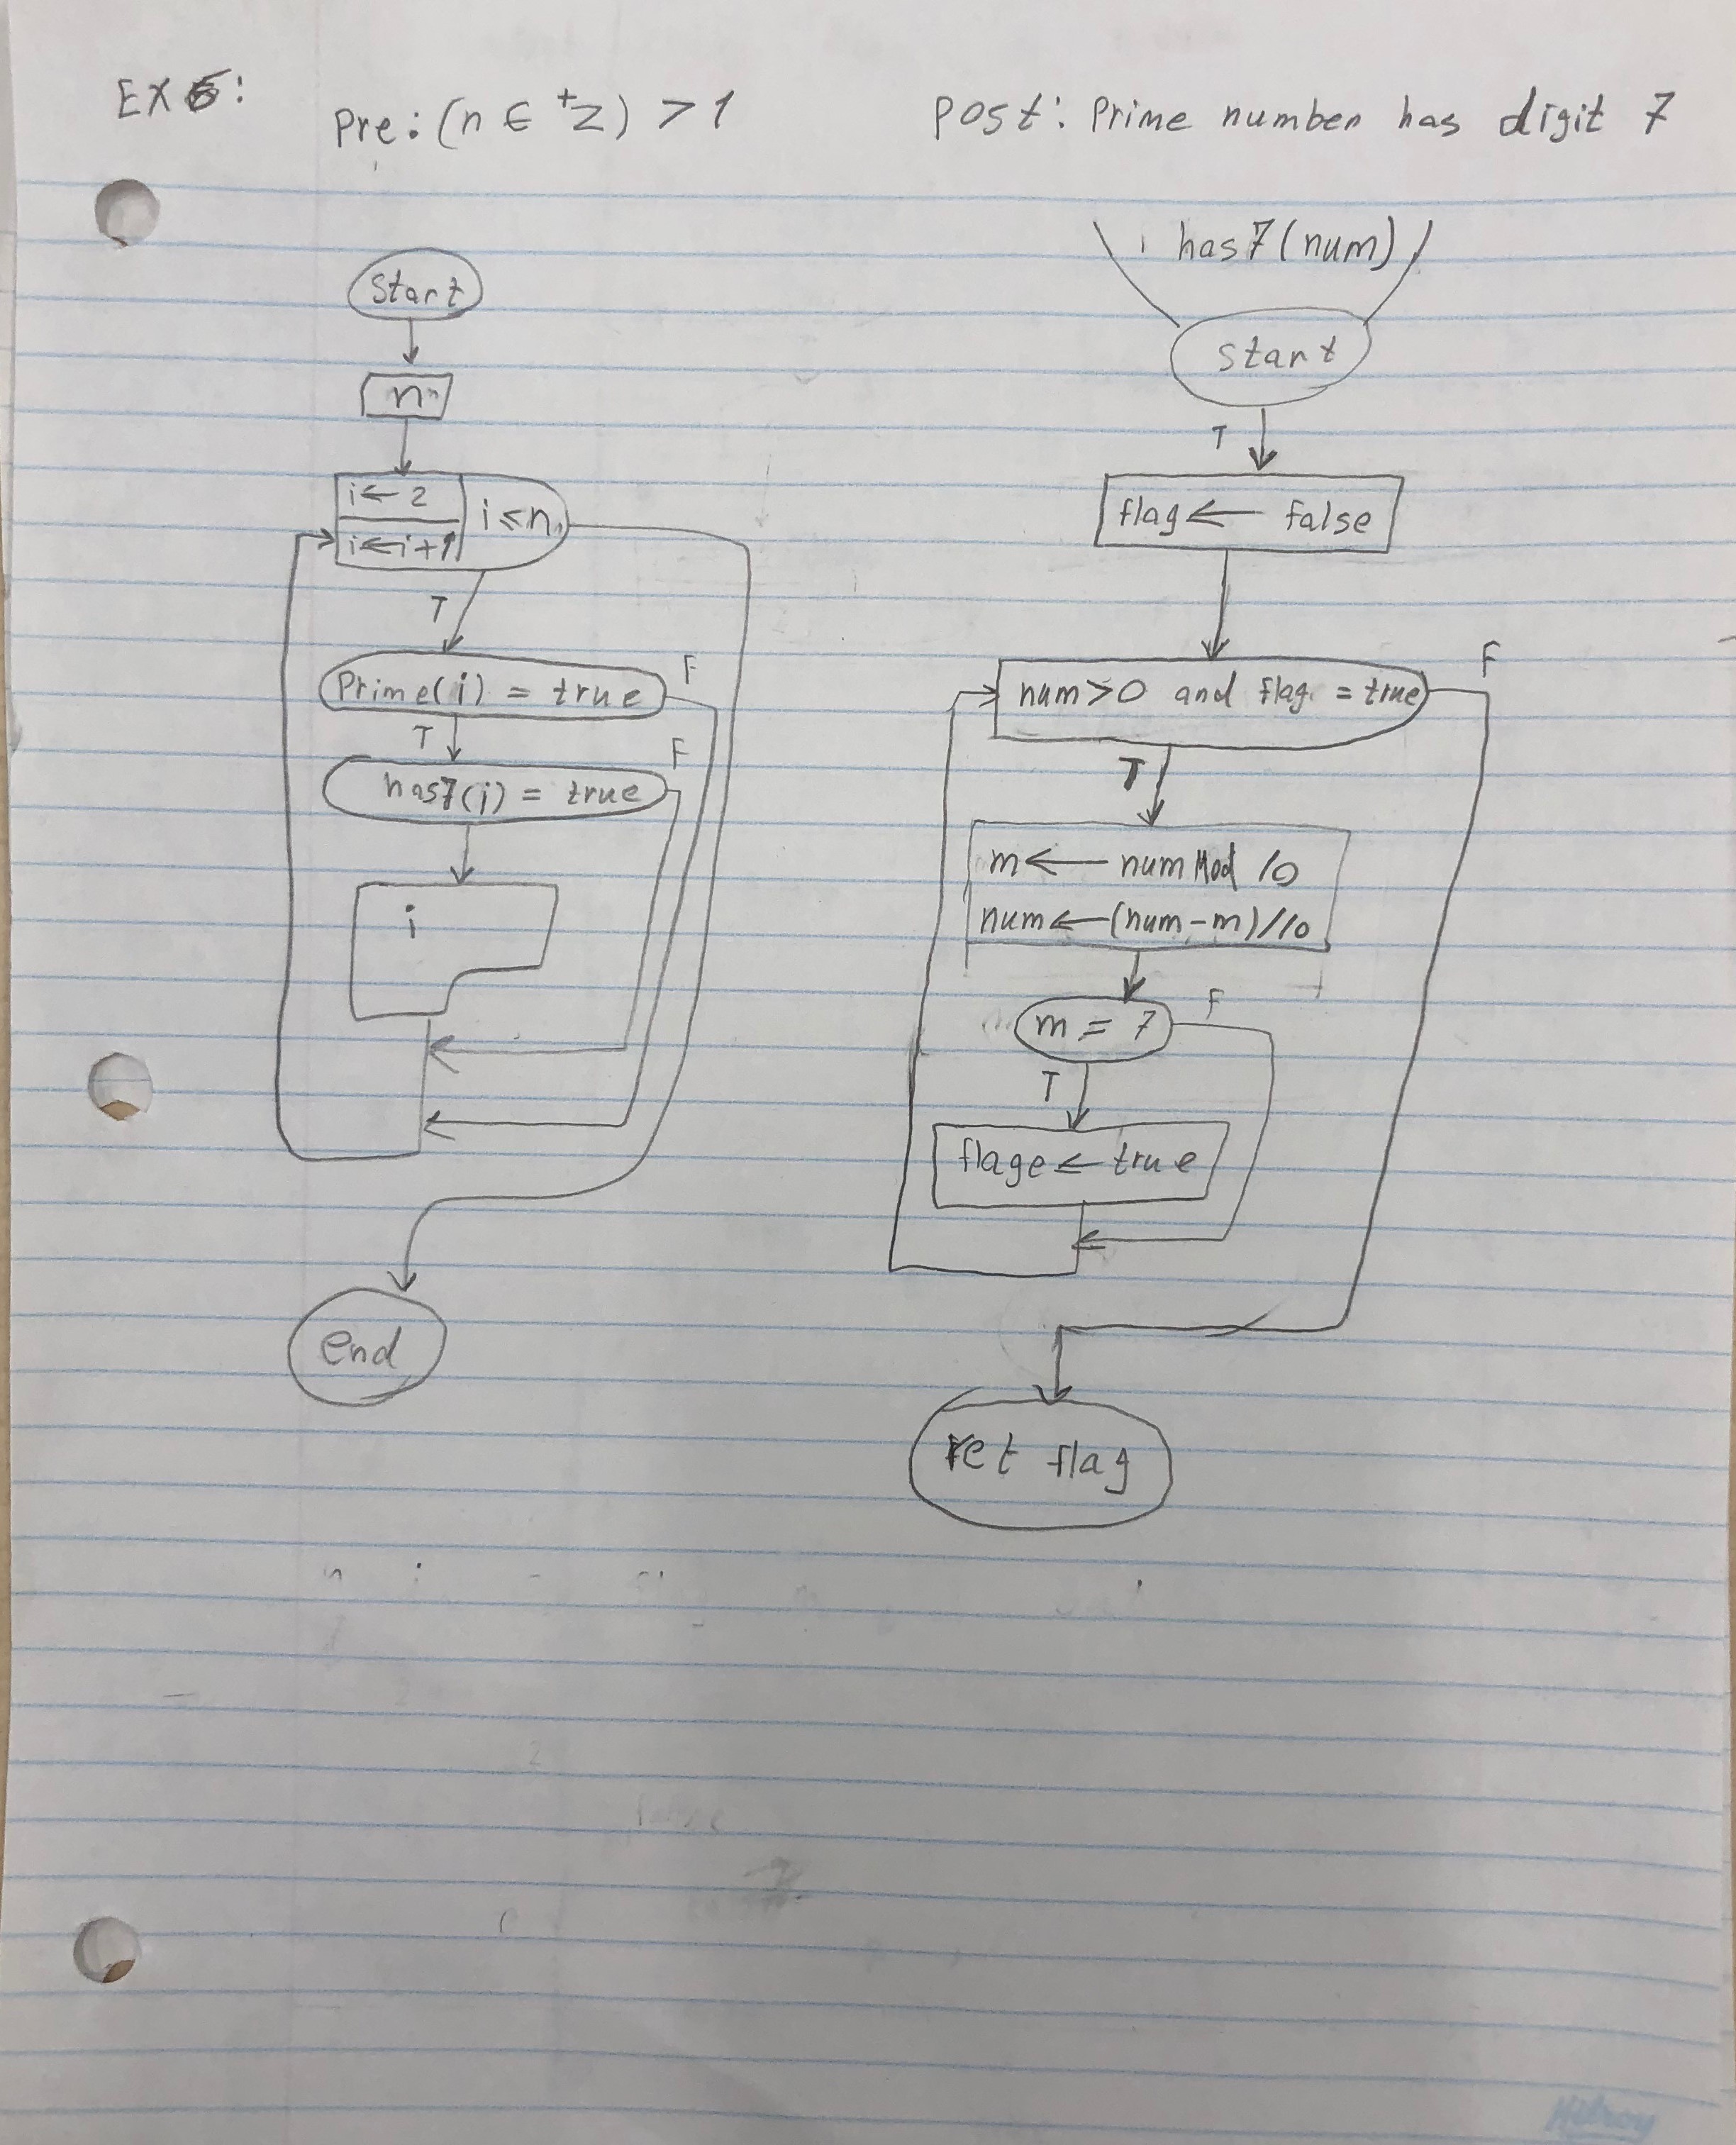 EX 6:
Pre: (n ∈ ⁺Z) > 1
Post: Prime number has digit 7
Start
n
i ← 2
i ← i+1
i ≤ n
T
Prime(i) = true
F
T
has7(i) = true
F
i
end
has7(num)
start
T
flag ← false
num>0 and flag = true
F
T
m ← num Mod 10
num ← (num-m)/10
m = 7
F
T
flage ← true
ret flag
Hilroy